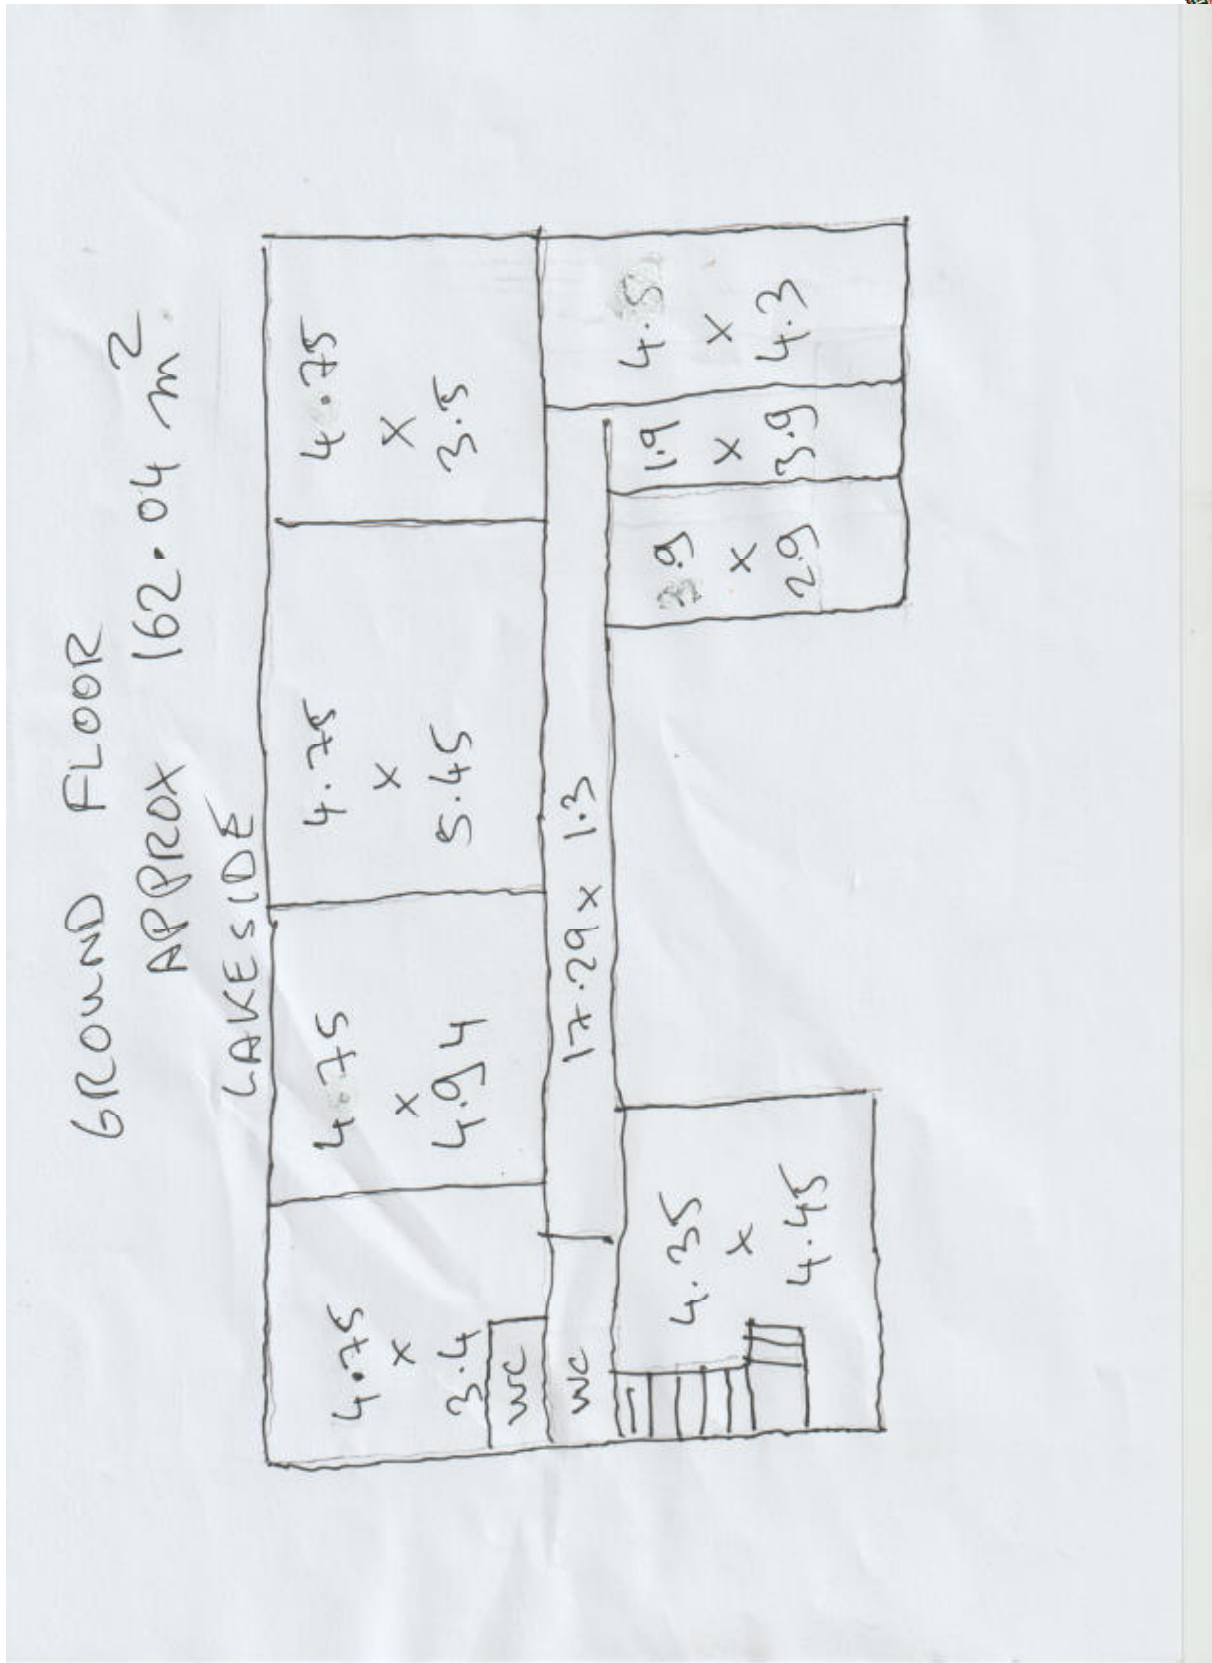 GROUND FLOOR
APPROX 162.04 m²
LAKESIDE
4.75
x
3.4
4.75
x
4.94
4.75
x
5.45
4.75
x
3.5
WC
WC
17.29 x 1.3
4.35
x
4.45
3.9
x
2.9
1.9
x
3.9
4.5
x
4.3